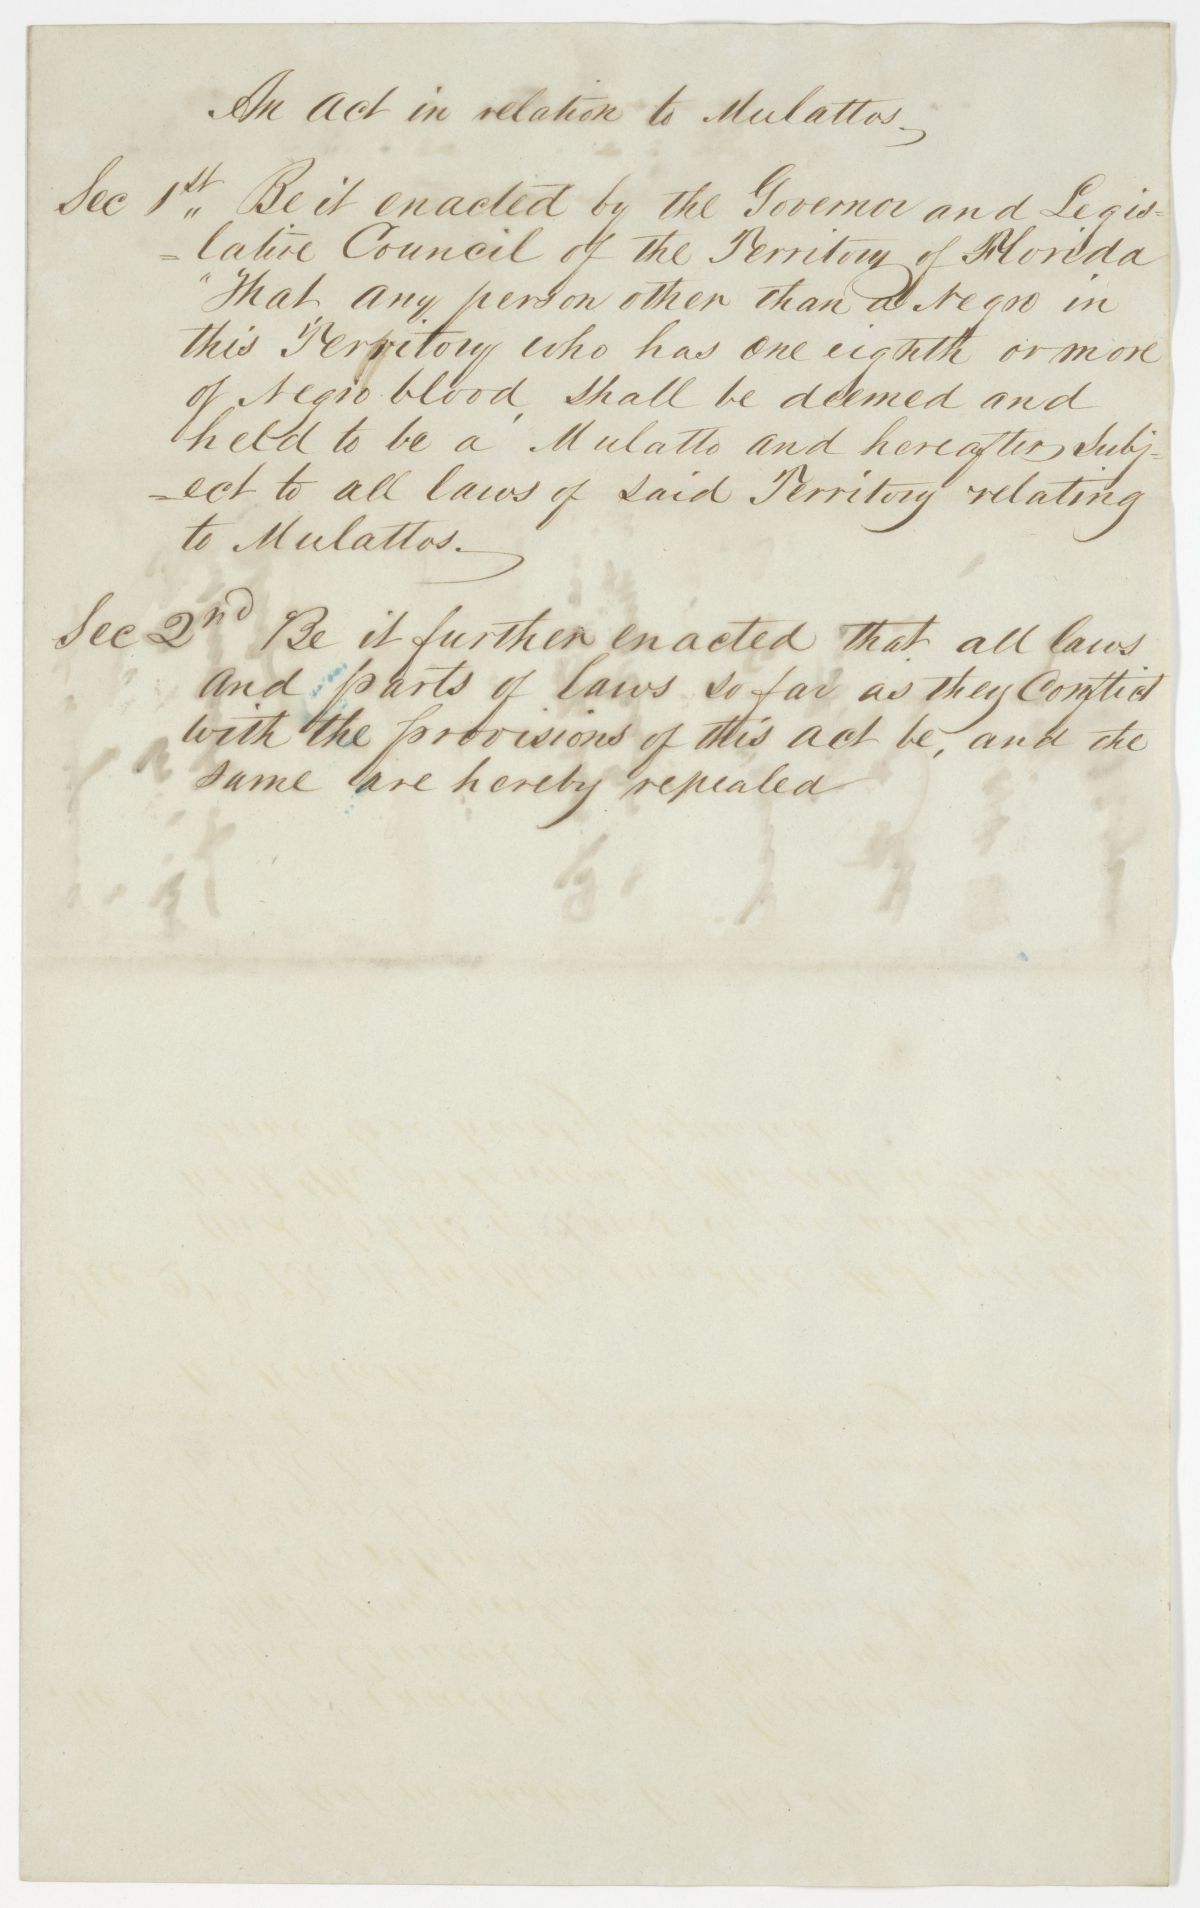 An Act in relation to Mulattos
Sec 1st,, Be it enacted by the Governor and Legis=
=lative Council of the Territory of Florida
"That any person other than a Negro in
this Territory who has one eighth or more
of Negro blood, shall be deemed and
held to be a Mulatto and hereafter, Subj=
=ect to all laws of said Territory relating
to Mulattos.
Sec 2nd Be it further enacted that all laws
and parts of laws so far as they Conflict
with the provisions of this act be, and the
same are hereby repealed